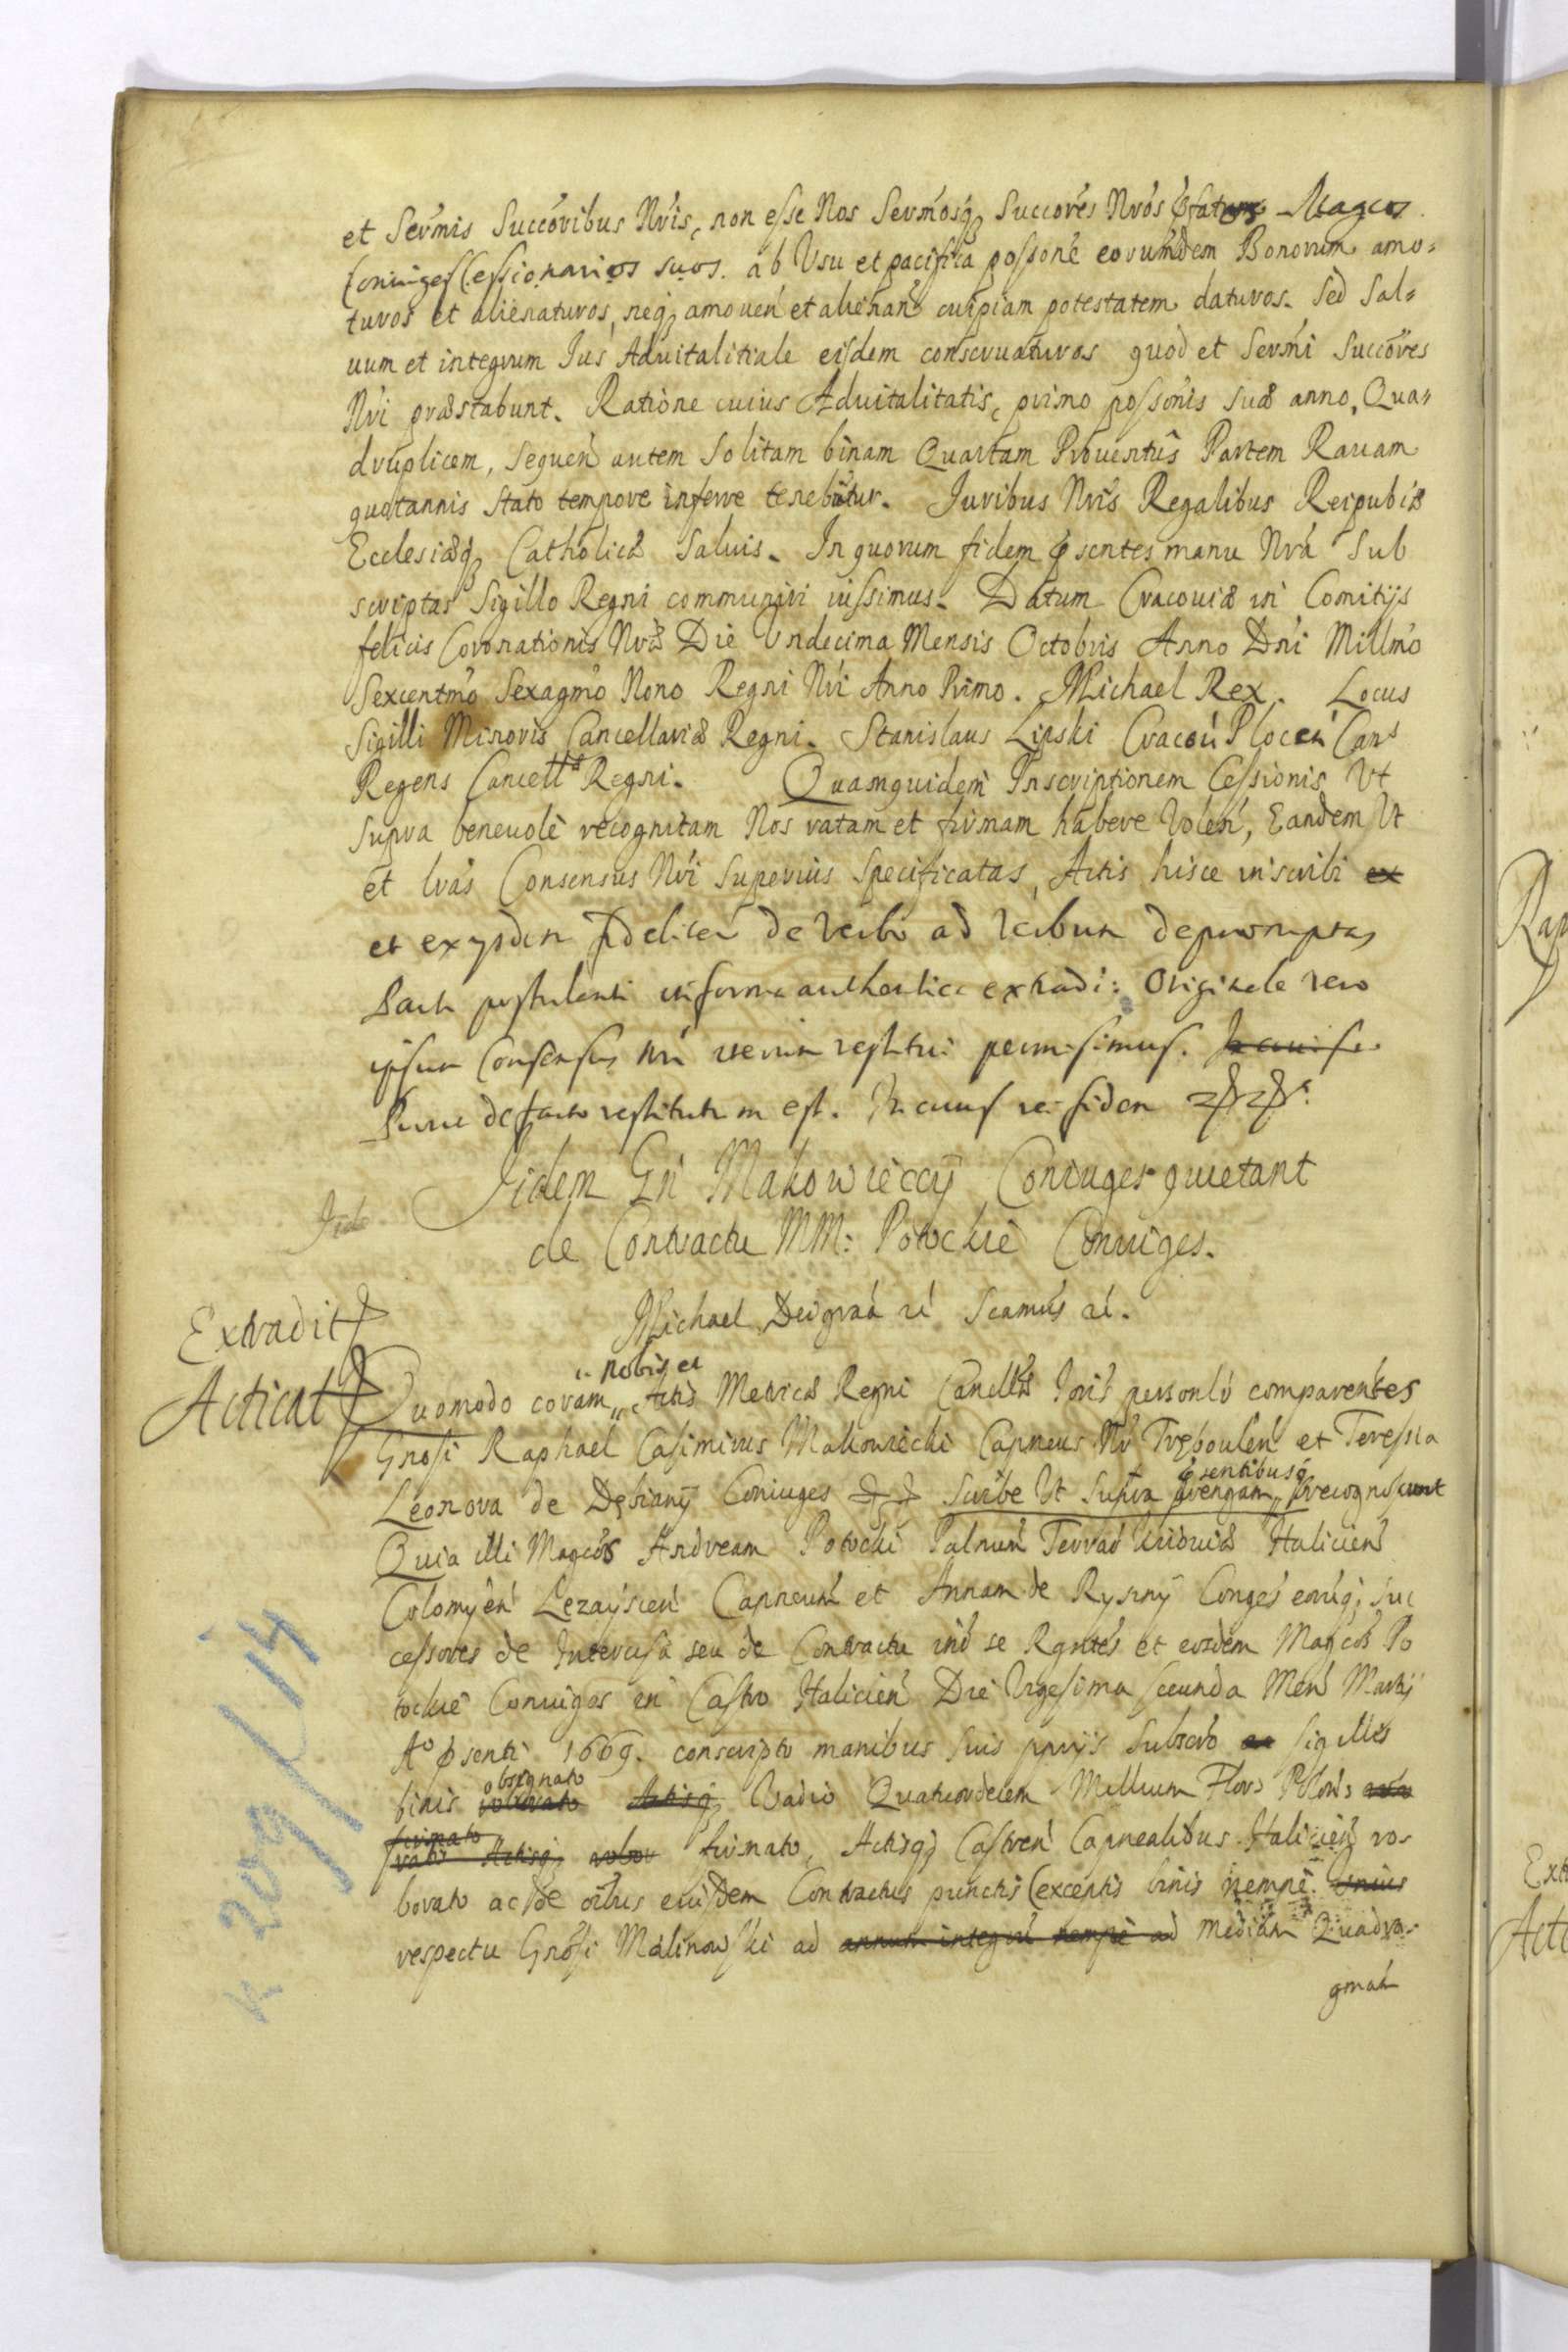 et Serm̃is Succõribus Nr̃is, non esse Nos Serm̃osq; Succorẽs Nr̃os p̃fatos Magcos
Coniuges Cessionarios suos. ab Usu et pacifica possonẽ eorumdem Bonorum amo-
turos et alienaturos, neq; amouen̾ et alienan̾ cuipiam potestatem daturos. Sed Sal-
uum et integrum Ius Aduitalitiale eisdem conseruaturos quod et Serm̃i Succõres
Nr̃i præstabunt. Ratione cuius Aduitalitatis, primo possonĩs suæ anno, Qua-
druplicem, Sequen̾ autem Solitam binam Quartam Prouentûs Partem Rauam
quotannis stato tempore inferre tenebũtur. Iuribus Nr̃is Regalibus Reipubcæ
Ecclesiæq; Catholicæ Saluis. In quorum fidem p̃sentes manu Nr̃a Sub
scriptas Sigillo Regni communiri iussimus. Datum Cracouiæ in Comitijs
felicis Coronationis Nr̃æ Die Undecima Mensis Octobris Anno Dn̾i Millm̃o
Sexcentm̃o Sexagm̃o Nono Regni Nr̃i Anno Primo. Michael Rex. Locus
Sigilli Minoris Cancellariæ Regni. Stanislaus Lipski Cracou̾ Plocen̾ Cans
Regens Cancellæ Regni. Quamquidem Inscriptionem Cessionis Ut
supra beneuolè recognitam Nos ratam et firmam habere Volen̾, Eandem Ut
et Lr̃as Consensus Nr̃i Superius Specificatas, Actis hisce inscribi ex
et ex ysdem fideliter de Verbo ad Verbum depromptas
Parti postulanti in forma authentica extradi: Originale vero
ipsum Consensus Nr̃i iterum restitui permisimus. In cuius
Prout de facto restitutum est. In cuius rei fidem
Iidem Gn̾ Makowieccÿ Coniuges quietant
de Contractu MM: Potockie Coniuges.
Iide
Michael Dei gra̾a re̾ Seamus̾ a̾e.
Extradit
Acticat
Quomodo coram „ Actis Metricæ Regni Cancllæ Ioris̃ personlr̃ comparentes
„ nobis et
Gnosi Raphael Casimirus Makowiecki Capneus Nr̃ Tręboulen̾ et Teressia
Leonora de Dębiany Coniuges Scribe Ut Supra recognoscunt
p̃sentibusq̃
Quia illi Magcos̃ Andream Potocki Palnum̃ Terrar̃ Kiouiæ Halicien̾
Colomyen̾ Lezaÿscien̾ Capneum̃ et Annam de Rysiny Conges̃ eorũq; Suc
cessores de Intercisa seu de Contractu int̃ se Rgntes̃ et eosdem Magcos̃ Po
tockie Coniuges in Castro Halicien̾ Die Vigesima secunda Men̾ Martij
Ao p̃senti 1669. conscripto manibus suis pprijs Subscrõ ac Sigillis
binis roborato Actisq; Vadio Quatuordecim Millium Flor̃ Polon̾
obsignato
firmato
Actisq; robor firmato, Actisq; Castren̾ Capnealibus Halicien̾ ro-
borato ac de oibus̃ eiusdem Contractus punctis (exceptis binis nempè unius
respectu Gnosi Malinowski ad annum integrũ nempè ad mediam Quadra-
gmah
K 209/14